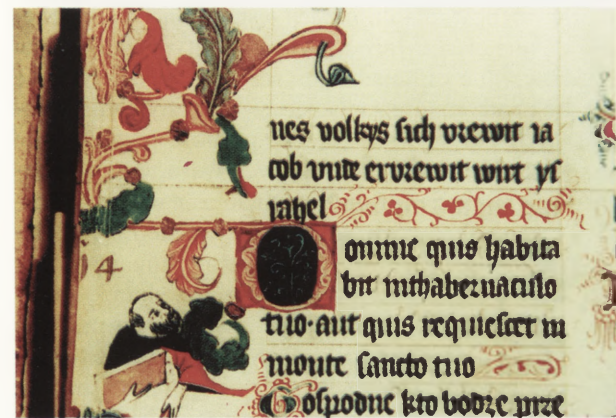 nes volkys sich vrewit ia
cob vnde ervrewit wirt ys
rahel
14
Domine quis habita
bit inthabernaculo
tuo·aut quis requiescet in
monte sancto tuo
Gospodne kto bodze prze